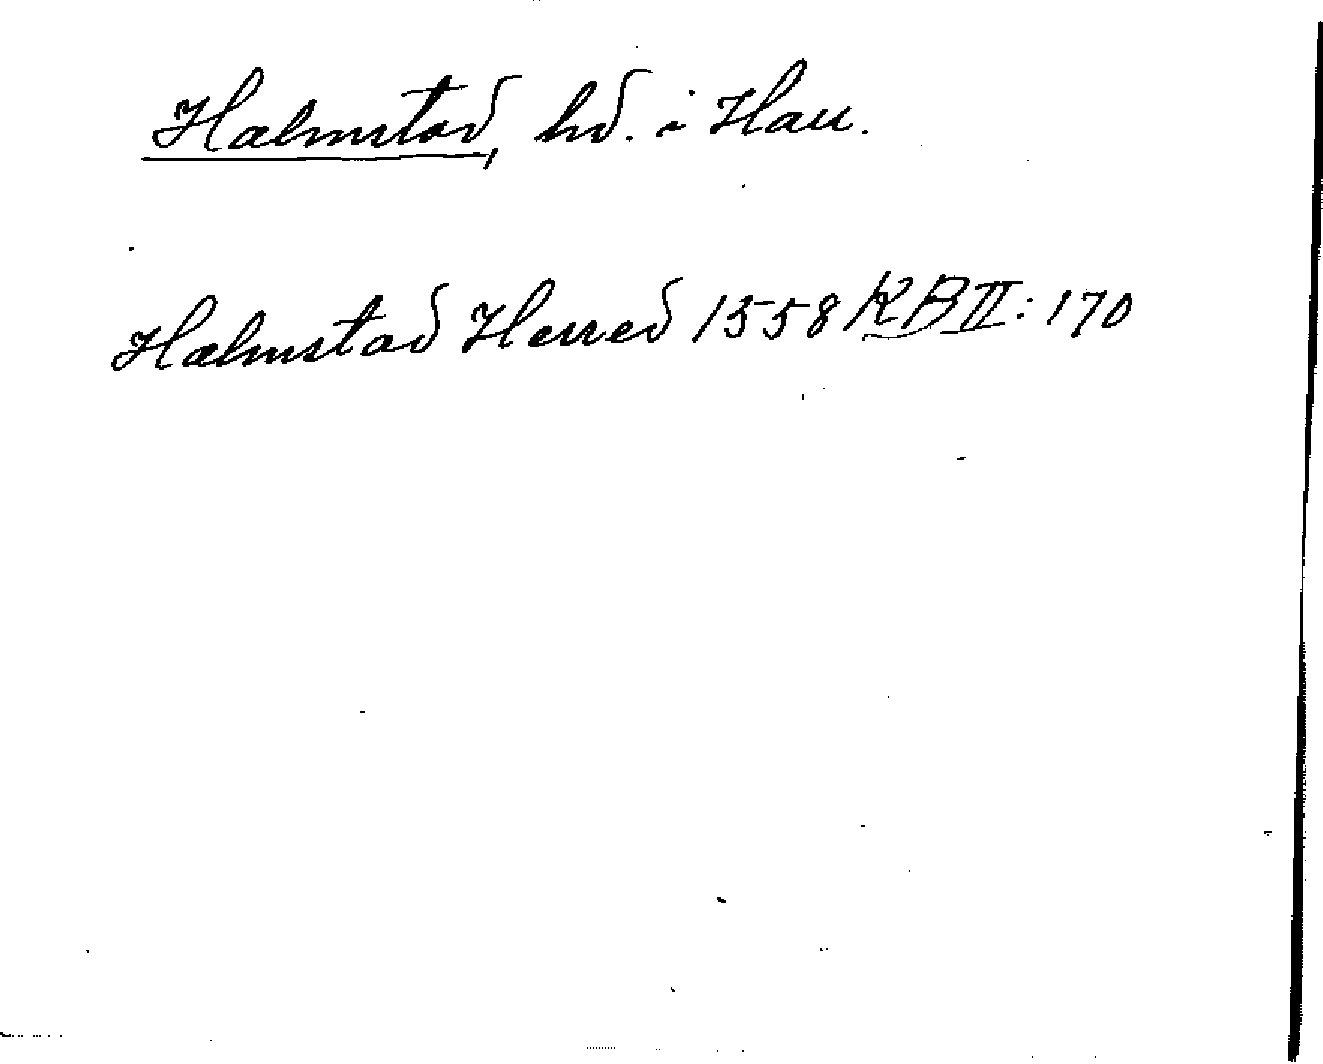 Halmstad, hd. i Hall.
Halmstad Herred 1558 KB II: 170